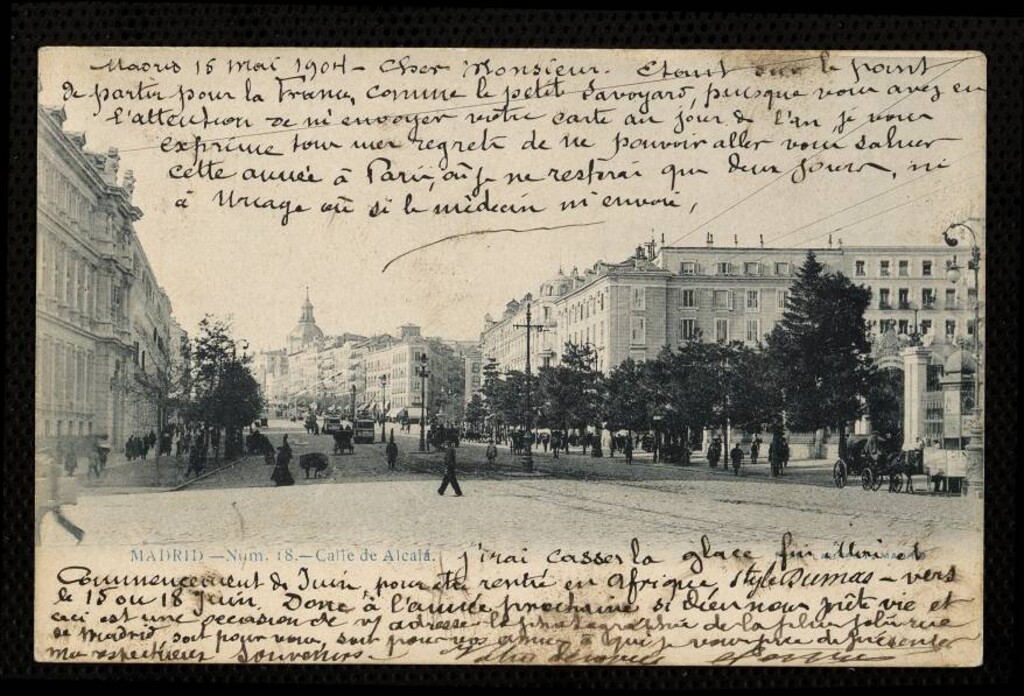 Madrid 15 mai 1904 - Cher Monsieur. Etant sur le point
de partir pour la France, comme le petit Savoyard, puisque vous avez eu
l'attention de m'envoyer votre carte au jour de l'an, je vous
exprime tous mes regrets de ne pouvoir aller vous saluer
cette année à Paris, où je ne resterai que deux jours, ni
à Uriage où si le médecin m'envoie,
MADRID.—Núm. 18.—Calle de Alcalá.
j'irai casser la glace fin Mai et
Commencement de Juin, pour être rentré en Afrique, style Dumas - vers
le 15 ou 18 Juin. Donc à l'année prochaine si dieu nous prête vie et
ceci est une occasion de v/ adresser la photographie de la plus jolie rue
de Madrid, soit pour vous, soit pour vos amis à qui je vous prie de présenter
mes respectueux Souvenirs.